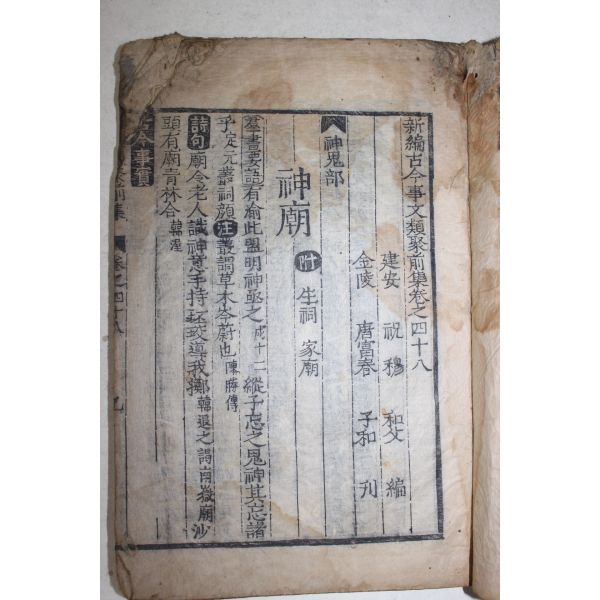 新編古今事文類聚前集卷之四十八
建安 祝穆 和父 編
金陵 唐富春 子和 刊
神鬼部
神廟 附 生祠 家廟
羣書要語有渝此盟明神亟之成十二縱子忘之鬼神其忘諸
乎定元叢祠顔注叢謂草木岑蔚也陳勝傳
詩句廟令老人識神意手持珓導我擲韓退之謁南嶽廟沙
頭有廟青林合韓渥
卷之四十八